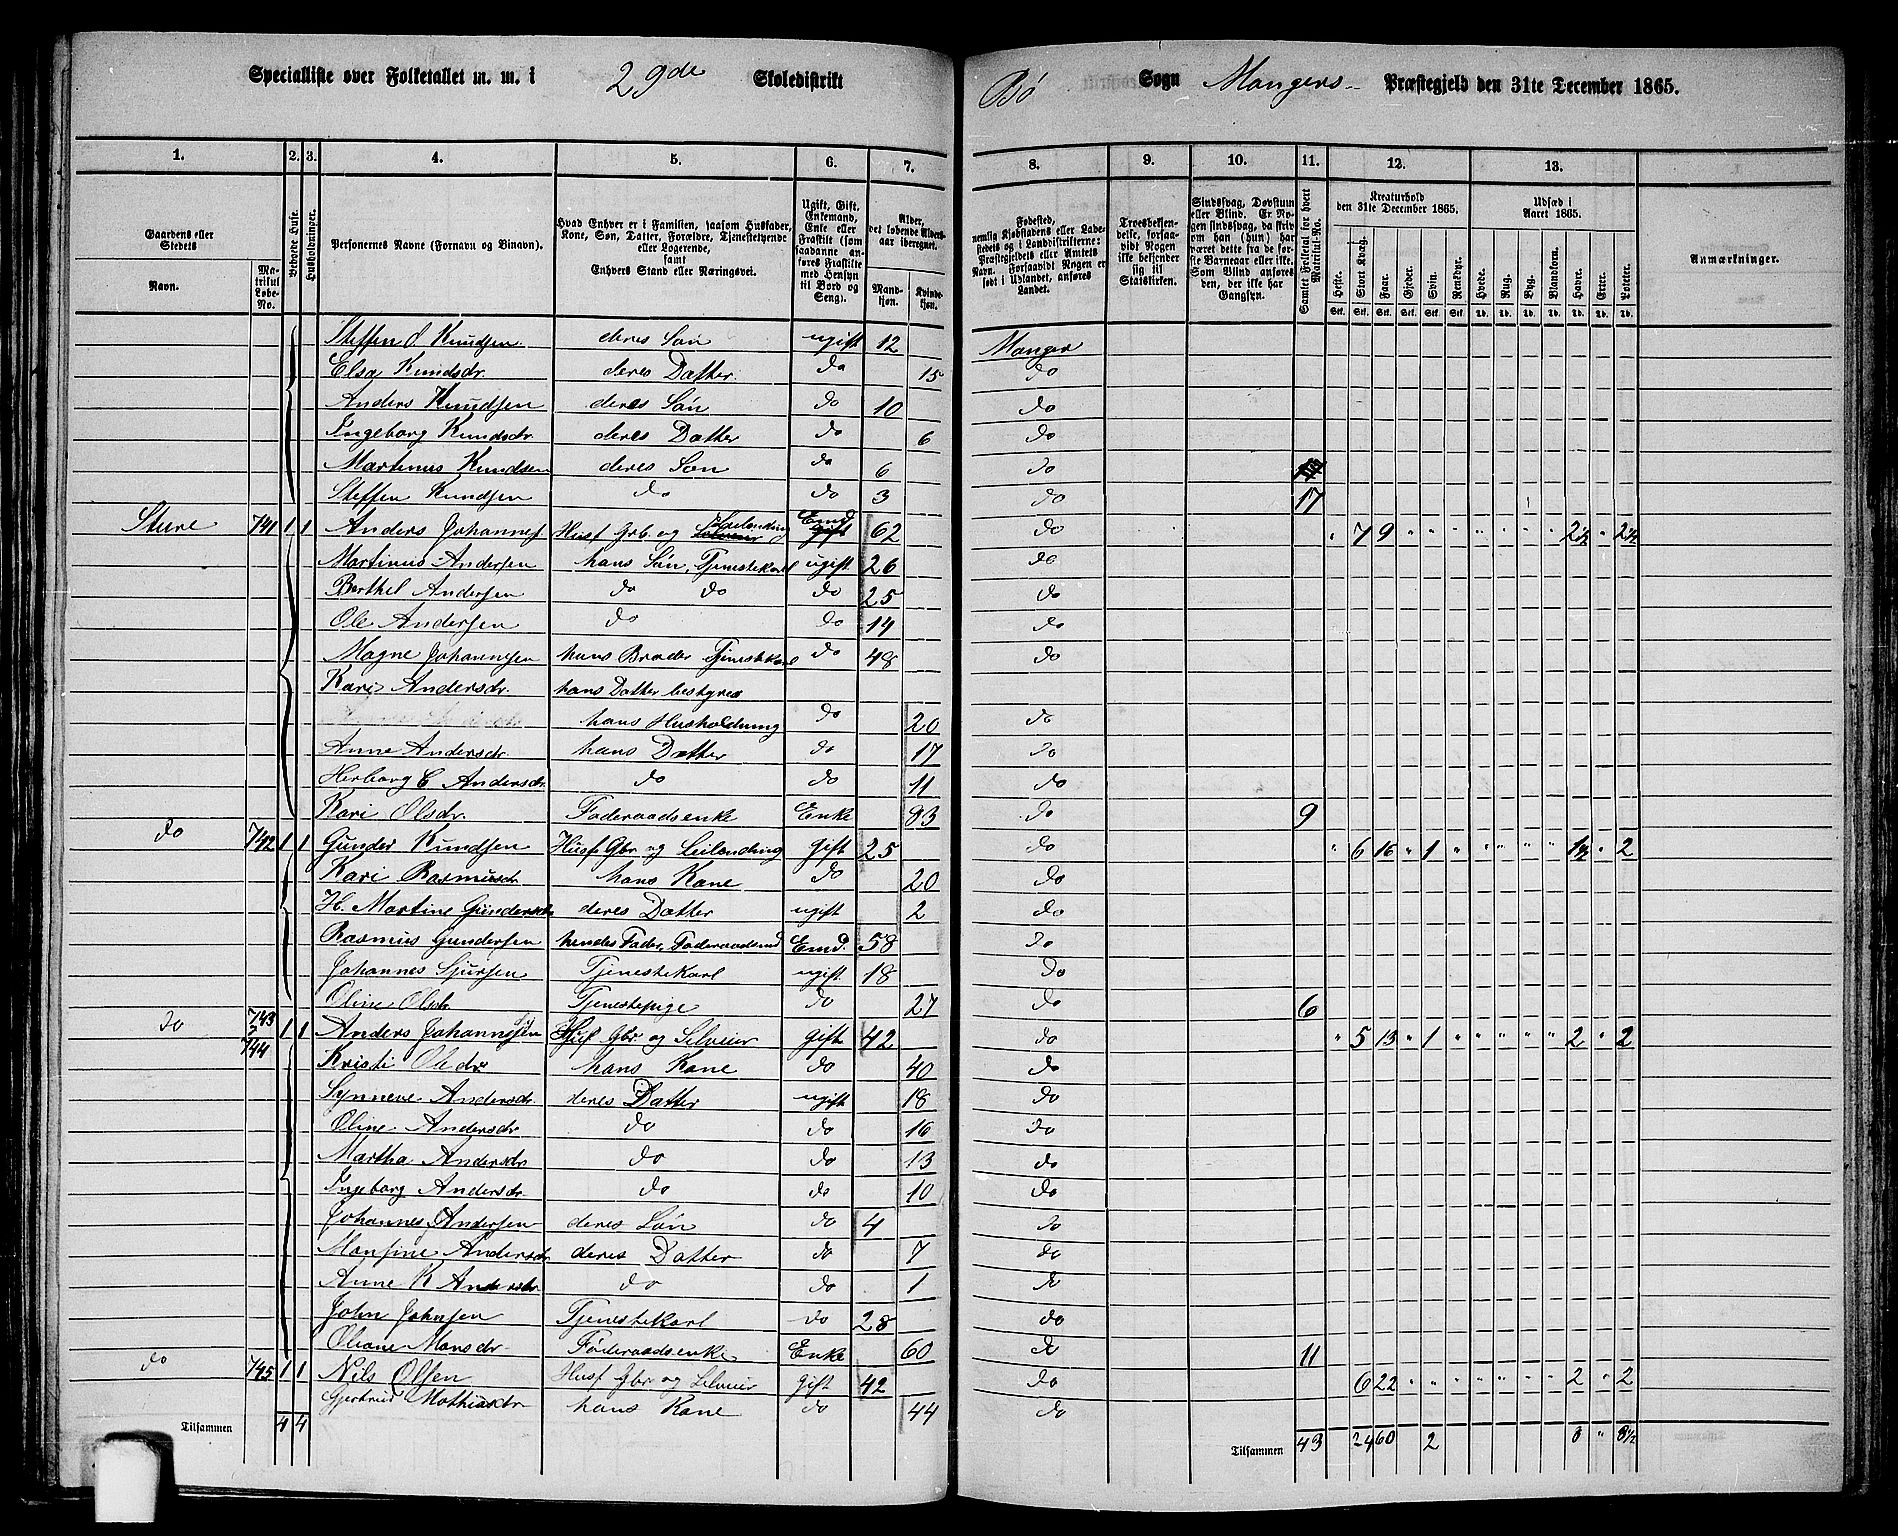 Specialliste over Folketallet m. m. i 29de Skoledistrikt
Bö Sogn Mangers Præstegjeld den 31te December 1865.
1. 2. 3. 4. 5. 6. 7. 8. 9. 10. 11. 12. 13.
Gaardens eller Stedets
Navn. Matrikul Løbe-No.
Beboede Huse.
Husholdninger.
Personernes Navne (Fornavn og Binavn).
Hvad Enhver er i Familien, saasom Husfader, Kone, Søn, Datter, Forældre, Tjenestetyende eller Logerende, samt Enhvers Stand eller Næringsvei.
Ugift, Gift, Enkemand, Enke eller Fraskilt (som saadanne anføres Fraskilte med Hensyn til Bord og Seng).
Alder, det løbende Alders-aar iberegnet.
Mandkjøn. Kvindekjøn.
Fødested, nemlig Kjøbstadens eller Ladestedets og i Landdistrikterne: Præstegjeldets eller Amtets Navn. Forsaavidt Nogen er født i Udlandet, anføres Landet.
Troesbekjendelse, forsaavidt Nogen ikke bekjender sig til Statskirken.
Sindssvag, Døvstum eller Blind. Er Nogen sindssvag, da skrives om han (hun) har været dette fra de første Barneaar eller ikke. Som Blind anføres den, der ikke har Gangsyn.
Samlet Folketal for hvert Matrikul-No.
Kreaturhold den 31te December 1865.
Heste. Stort Kvæg. Faar. Gjeder. Sviin. Rensdyr.
Udsæd i Aaret 1865.
Hvede. Rug. Byg. Blandkorn. Havre. Erter. Poteter.
Anmærkninger.
Steffen O Knudsen deres Sön ugift 12 Manger
Elsa Knudsdr. deres Datter. do 15 do
Anders Knudsen deres Sön do 10 do
Ingeborg Knudsdr. deres Datter do 6 do
Martinus Knudsen deres Sön do 6 do
Steffen Knudsen do do 3 do 17
Sture 741 1 1 Anders Johannes. Husf Grb. og Leilending Emd 62 do " 7 9 " " " " " " " 2½ " 2½
Martinus Andersen hans Sön, Tjenestekarl ugift 26 do
Berthel Andersen do do do 25 do
Ole Andersen do do 14 do
Magne Johannesen hans Broder Tjenestekarl do 48 do
Kari Andersdr. hans Datter bestyrer
hans Husholdning do 20 do
Anne Andersdr. hans Datter do 17 do
Herborg C Andersdr. do do 11 do
Kari Olsdr. Foderaadsenke Enke 83 do 9
do 742 1 1 Gunder Knudsen Husf Gbr og Leilending gift 25 do " 6 16 " 1 " " " " " 1½ " 2
Kari Rasmusdr hans Kone do 20 do
H. Martine Gundersdr deres Datter ugift 2 do
Rasmus Gundersen hendes Fader, Foderaadsmd Emd. 58 do
Johannes Sjursen Tjenestekarl ugift 18 do
Oline Olsdr. Tjenestepige do 27 do 6
do 743 & 744 1 1 Anders Johannesen Husf Gbr og Selveier gift 42 do " 5 13 " 1 " " " " " 2 " 2
Kristi Olsdr hans Kone do 40 do
Synneve Andersdr. deres Datter ugift 18 do
Oline Andersdr do do 16 do
Martha Andersdr do do 13 do
Ingeborg Andersdr do do 10 do
Johannes Andersen deres Sön do 4 do
Monsine Andersdr deres Datter do 7 do
Anne K Andersdr do do 1 do
John Johnsen Tjenestekarl do 28 do
Oliane Monsdr Föderaadsenke Enke 60 do 11
do 745 1 1 Nils Olsen Husf Gbr og Selveier gift 42 do 6 22 " " " " " " " 2 " 2
Gjertrud Mathiasdr hans Kone do 44 do
Tilsammen 4 4
Tilsammen 43 24 60 2 8 " 8½